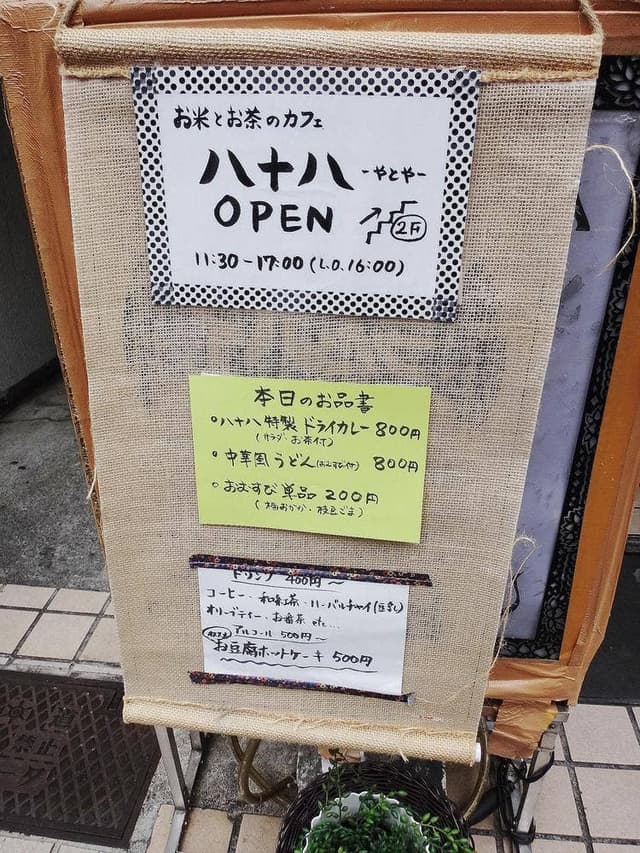 お米とお茶のカフェ
八十八 -やとや-
OPEN 2F
11:30-17:00 (L.O.16:00)
本日のお品書
・八十八特製ドライカレー 800円
(サラダ お茶付)
・中華風うどん(おむすび付) 800円
・おむすび単品 200円
(梅おかか・枝豆ごま)
ドリンク 400円~
コーヒー・和紅茶・ハーバルチャイ(豆乳)
オリーブティー・お番茶 etc...
アルコール 500円~
お豆腐ホットケーキ 500円